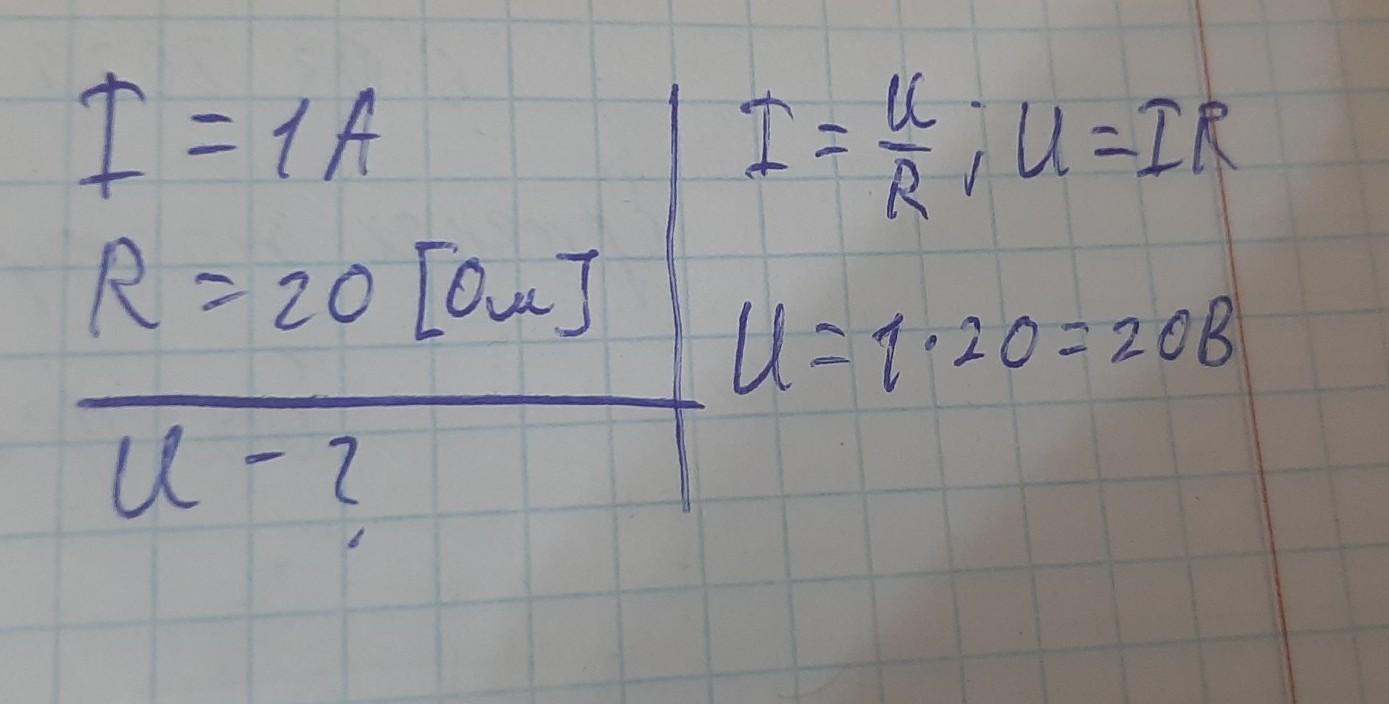 I = 1 А
R = 20 [Ом]
U - ?
I = U/R ; U = IR
U = 1·20 = 20В